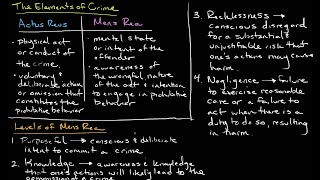 The Elements of Crime
Actus Reus
• physical act
or conduct of
the crime.
• voluntary &
deliberate action
or omission that
constitutes the
prohibitive behavior
Mens Rea
• mental state
or intent of the
offender
• awareness of
the wrongful nature
of the act & intention
to engage in prohibitive
behavior
Levels of Mens Rea
1. Purposeful → conscious & deliberate
intent to commit a crime.
2. Knowledge → awareness & knowledge
that one's actions will likely lead to the
commission of a crime
3. Recklessness →
conscious disregard
for a substantial &
unjustifiable risk that
one's actions may cause
harm.
4. Negligence → failure
to exercise reasonable
care or a failure to
act when there is a
duty to do so, resulting
in harm.